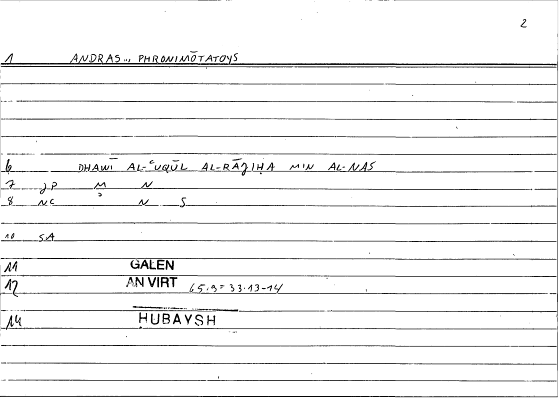 2
1 ANDRAS.., PHRONIMŌTATOYS
6 DHAWĪ AL-ʿUQŪL AL-RĀJIḤA MIN AL-NAS
7 JP M N
8 NC N S
10 SA
11 GALEN
12 AN VIRT 65.9= 33.13-14
14 HUBAYSH